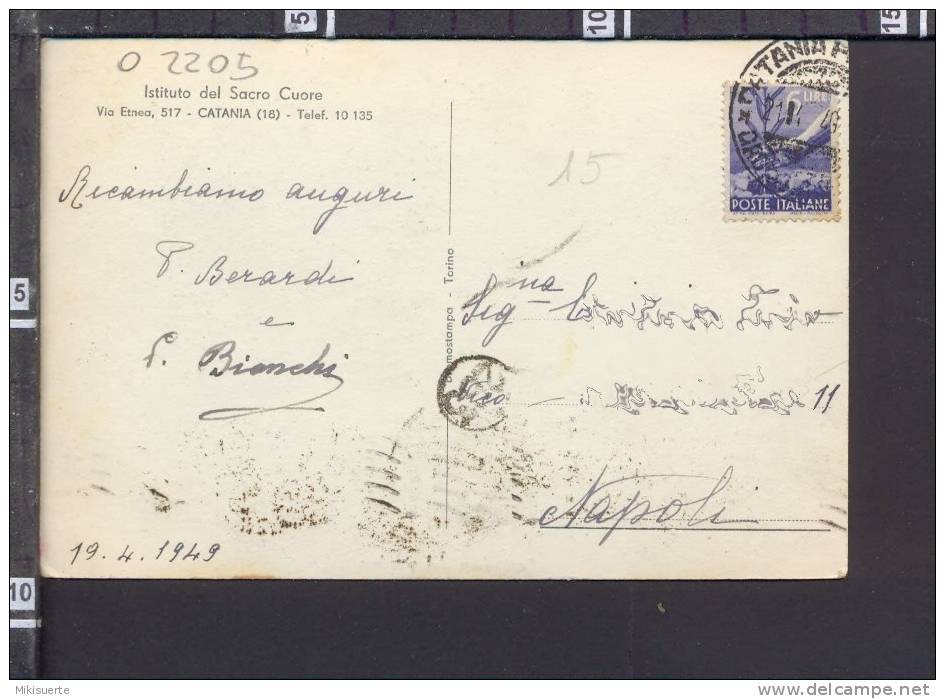 5
10
15
O 2205
Istituto del Sacro Cuore
Via Etnea, 517 - CATANIA (18) - Telef. 10 135
CATANIA
21.4.49
6 LIRE
POSTE ITALIANE
15
Ricambiamo auguri
P. Berardi
e
P. Bianchi
19.4.1949
- Torino
Sig.na
Vico
11
Napoli
5
10
Mikisuerte
www.delcampe.net